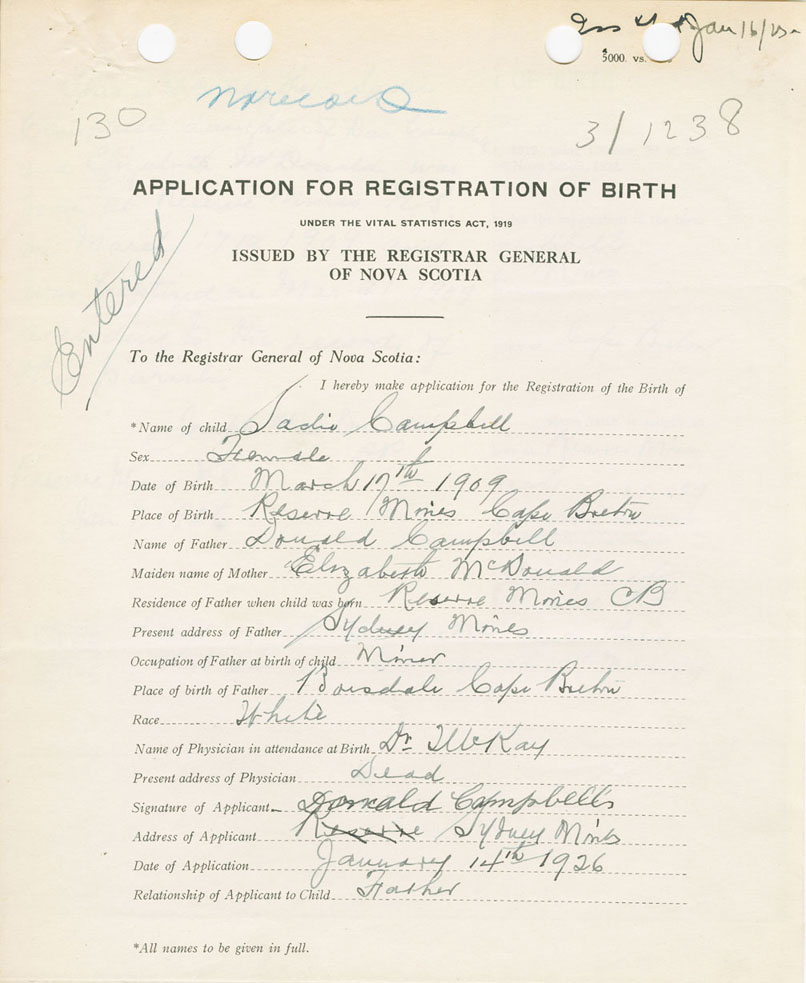 Jan 16/25
5000. vs.
No record
130
3/1238
APPLICATION FOR REGISTRATION OF BIRTH
UNDER THE VITAL STATISTICS ACT, 1919
ISSUED BY THE REGISTRAR GENERAL
OF NOVA SCOTIA
Entered
To the Registrar General of Nova Scotia:
I hereby make application for the Registration of the Birth of
*Name of child Sadie Campbell
Sex Female
Date of Birth March 17th 1909
Place of Birth Reserve Mines Cape Breton
Name of Father Donald Campbell
Maiden name of Mother Elizabeth McDonald
Residence of Father when child was born Reserve Mines CB
Present address of Father Sydney Mines
Occupation of Father at birth of child Miner
Place of birth of Father Boisdale Cape Breton
Race White
Name of Physician in attendance at Birth Dr McKay
Present address of Physician Dead
Signature of Applicant Donald Campbell
Address of Applicant Reserve Sydney Mines
Date of Application January 14th 1926
Relationship of Applicant to Child Father
*All names to be given in full.